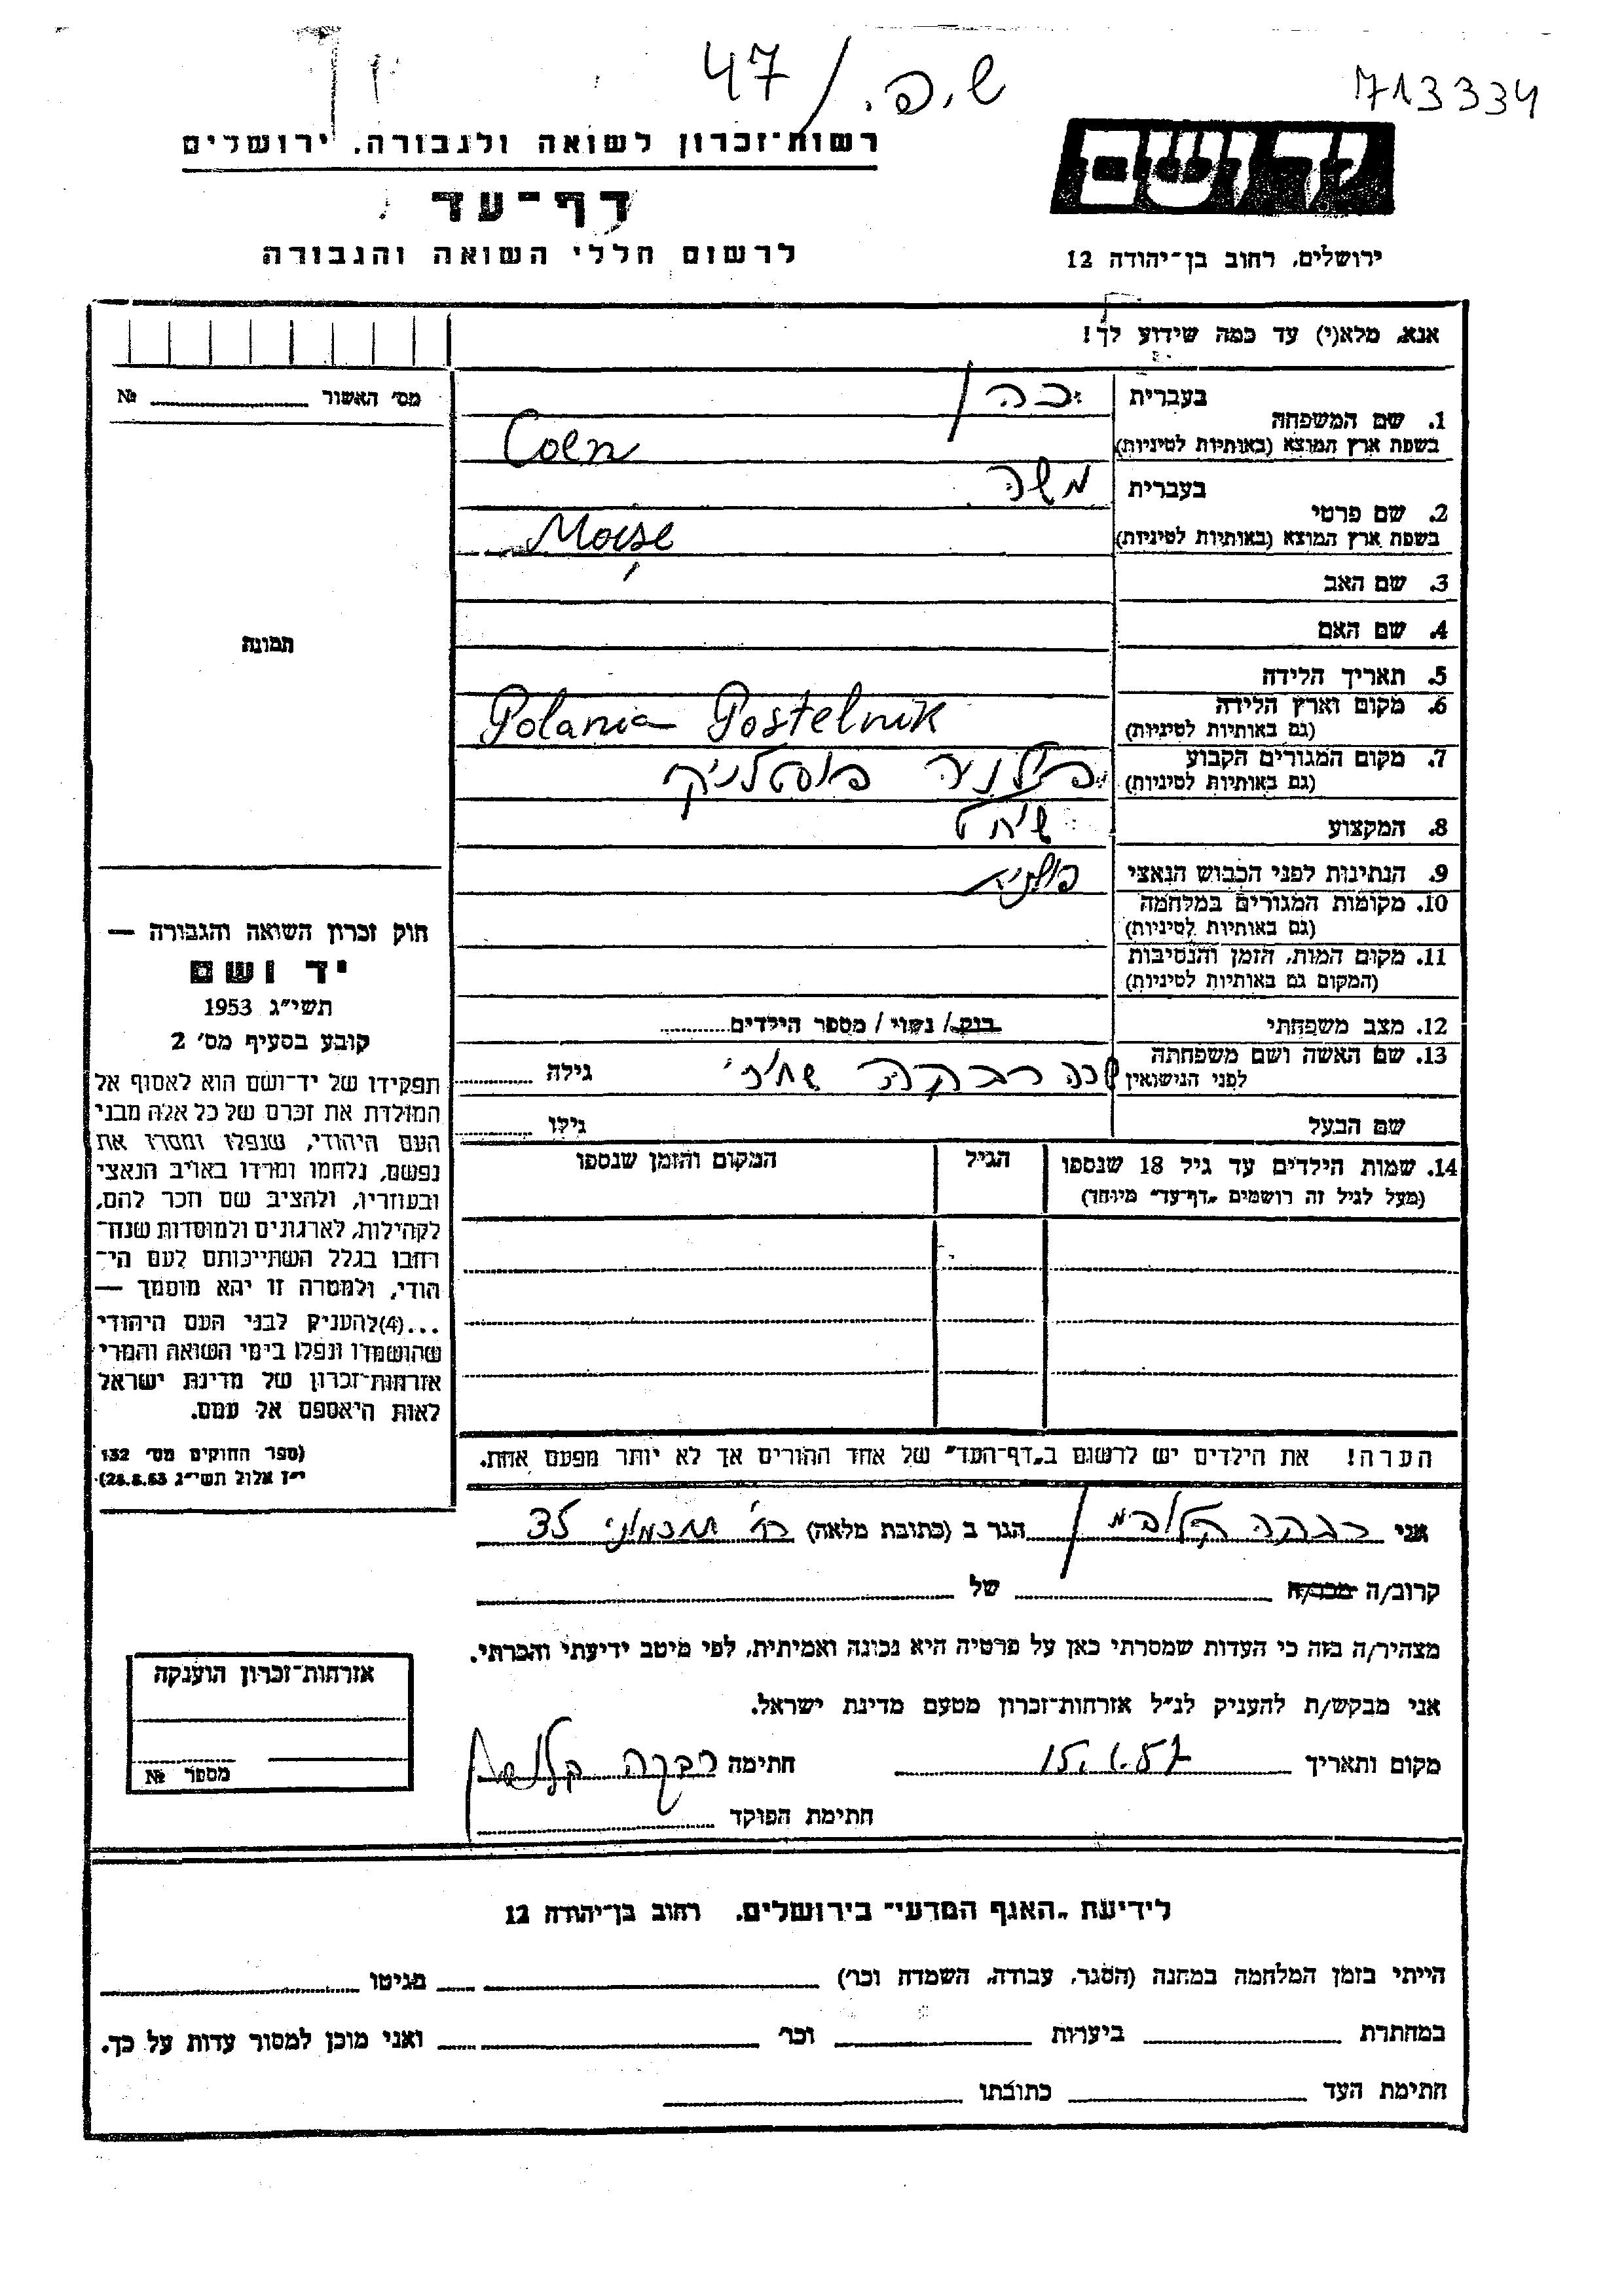 47 / ש.פ.
713334
רשות־זכרון לשואה ולגבורה, ירושלים
יד ושם
דף־עד
לרשום חללי השואה והגבורה
ירושלים, רחוב בן־יהודה 12
אנא, מלא(י) עד כמה שידוע לך!
מס׳ האשור № 
בעברית כהן
1. שם המשפחה
בשפת ארץ המוצא (באותיות לטיניות) Coen
בעברית משה
2. שם פרטי
בשפת ארץ המוצא (באותיות לטיניות) Moise
3. שם האב
4. שם האם
5. תאריך הלידה
6. מקום וארץ הלידה
(גם באותיות לטיניות) Polania Postelnik
7. מקום המגורים הקבוע
(גם באותיות לטיניות) פוסטלניק
8. המקצוע
9. הנתינות לפני הכבוש הנאצי
10. מקומות המגורים במלחמה
(גם באותיות לטיניות)
11. מקום המות, הזמן והנסיבות
(המקום גם באותיות לטיניות)
12. מצב משפחתי רווק / נשוי / מספר הילדים
13. שם האשה ושם משפחתה
לפני הנישואין רבקה גילה
שם הבעל גילו
14. שמות הילדים עד גיל 18 שנספו הגיל המקום והזמן שנספו
(מעל לגיל זה רושמים „דף־עד״ מיוחד)
הערה! את הילדים יש לרשום ב„דף־העד״ של אחד ההורים אך לא יותר מפעם אחת.
תמונה
חוק זכרון השואה והגבורה —
יד ושם
תשי״ג 1953
קובע בסעיף מס׳ 2
תפקידו של יד־ושם הוא לאסוף אל
המולדת את זכרם של כל אלה מבני
העם היהודי, שנפלו ומסרו את
נפשם, נלחמו ומרדו באויב הנאצי
ובעוזריו, ולהציב שם וזכר להם,
לקהילות, לארגונים ולמוסדות שנח־
רבו בגלל השתייכותם לעם הי־
הודי, ולמטרה זו יהא מוסמך —
...(4)להעניק לבני העם היהודי
שהושמדו ונפלו בימי השואה והמרי
אזרחות־זכרון של מדינת ישראל
לאות היאספם אל עמם.
(ספר החוקים מס׳ 132
י״ז אלול תשי״ג 28.8.53)
אני רבקה הגר ב (כתובת מלאה) רח׳ חכמוני 35
קרוב/ה מכר/ה של
מצהיר/ה בזה כי העדות שמסרתי כאן על פרטיה היא נכונה ואמיתית, לפי מיטב ידיעתי והכרתי.
אני מבקש/ת להעניק לנ״ל אזרחות־זכרון מטעם מדינת ישראל.
מקום ותאריך 15.1.57 חתימה רבקה
חתימת הפוקד
אזרחות־זכרון הוענקה
מספר №
לידיעת „האגף המדעי״ בירושלים, רחוב בן־יהודה 12
הייתי בזמן המלחמה במחנה (הסגר, עבודה, השמדה וכו׳) בגיטו
במחתרת ביערות וכו׳ ואני מוכן למסור עדות על כך.
חתימת העד כתובתו